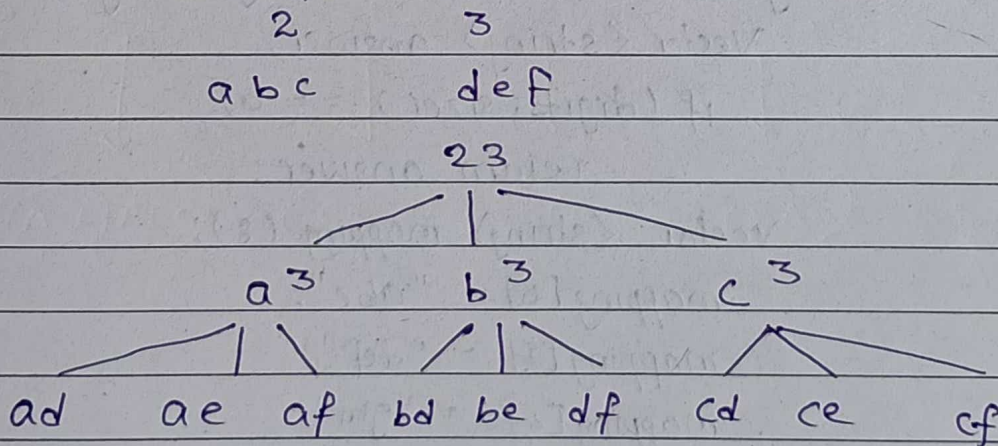 2 3
abc def
23
a 3 b 3 c 3
ad ae af bd be df cd ce cf